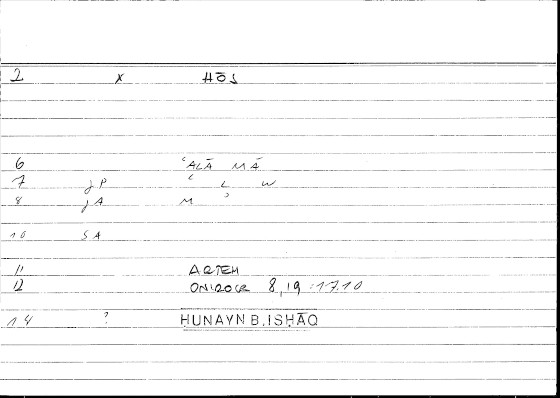 2 x HŌS
6 ʿALĀ MĀ
7 jP ʿ L W
8 jA M ʾ
10 SA
11 ARTEM
12 ONIROCR 8,19 :17.10
14 ? ḤUNAYN B. ISḤĀQ